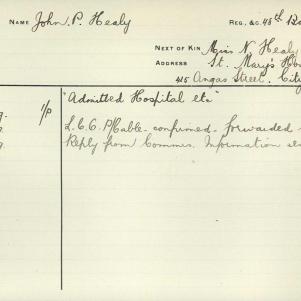 NAME John P. Healy REG. &C. 48th
NEXT OF KIN Miss N. Healy
ADDRESS St. Mary's
415 Angas Street. City
1/P "Admitted Hospital etc"
L.C.C. P/Cable. confirmed. forwarded
Reply from Commrs. Information